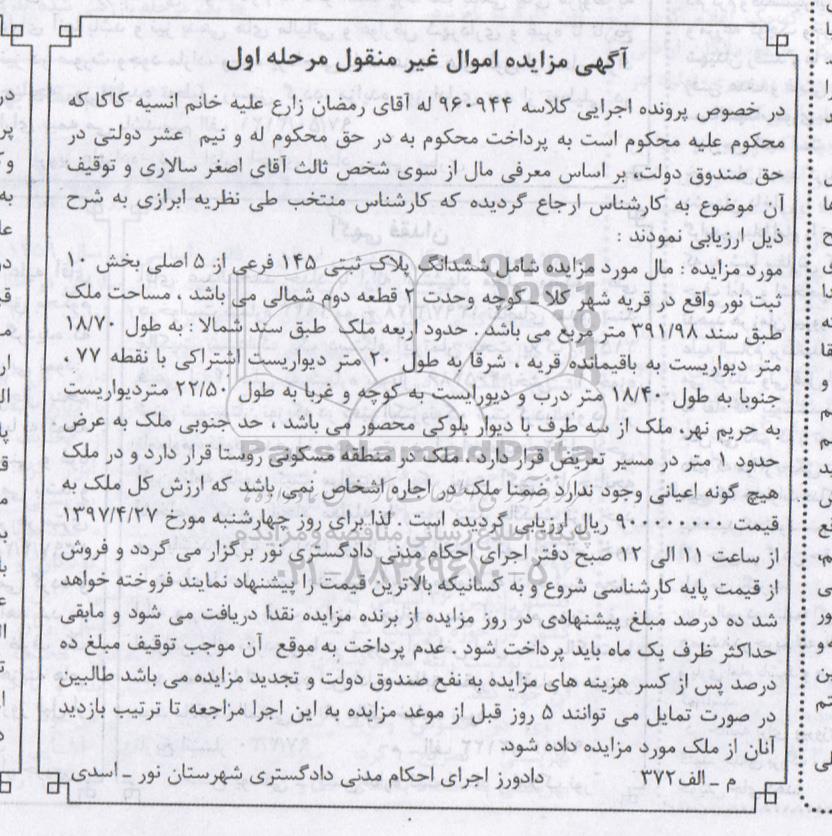 آگهی مزایده اموال غیر منقول مرحله اول
در خصوص پرونده اجرایی کلاسه ۹۶۰۹۴۴ له آقای رمضان زارع علیه خانم انسیه کاکا که
محکوم علیه محکوم است به پرداخت محکوم به در حق محکوم له و نیم عشر دولتی در
حق صندوق دولت، بر اساس معرفی مال از سوی شخص ثالث آقای اصغر سالاری و توقیف
آن موضوع به کارشناس ارجاع گردیده که کارشناس منتخب طی نظریه ابرازی به شرح
ذیل ارزیابی نمودند :
مورد مزایده : مال مورد مزایده شامل ششدانگ پلاک ثبتی ۱۴۵ فرعی از ۵ اصلی بخش ۱۰
ثبت نور واقع در قریه شهر کلا ـ کوچه وحدت ۲ قطعه دوم شمالی می باشد ، مساحت ملک
طبق سند ۳۹۱/۹۸ متر مربع می باشد . حدود اربعه ملک طبق سند شمالا : به طول ۱۸/۷۰
متر دیواریست به باقیمانده قریه ، شرقا به طول ۲۰ متر دیواریست اشتراکی با نقطه ۷۷ ،
جنوبا به طول ۱۸/۴۰ متر درب و دیورایست به کوچه و غربا به طول ۲۲/۵۰ متردیواریست
به حریم نهر، ملک از سه طرف با دیوار بلوکی محصور می باشد ، حد جنوبی ملک به عرض
حدود ۱ متر در مسیر تعریض قرار دارد . ملک در منطقه مسکونی روستا قرار دارد و در ملک
هیچ گونه اعیانی وجود ندارد ضمنا ملک در اجاره اشخاص نمی باشد که ارزش کل ملک به
قیمت ۹۰۰۰۰۰۰۰۰ ریال ارزیابی گردیده است . لذا برای روز چهارشنبه مورخ ۱۳۹۷/۴/۲۷
از ساعت ۱۱ الی ۱۲ صبح دفتر اجرای احکام مدنی دادگستری نور برگزار می گردد و فروش
از قیمت پایه کارشناسی شروع و به کسانیکه بالاترین قیمت را پیشنهاد نمایند فروخته خواهد
شد ده درصد مبلغ پیشنهادی در روز مزایده از برنده مزایده نقدا دریافت می شود و مابقی
حداکثر ظرف یک ماه باید پرداخت شود . عدم پرداخت به موقع آن موجب توقیف مبلغ ده
درصد پس از کسر هزینه های مزایده به نفع صندوق دولت و تجدید مزایده می باشد طالبین
در صورت تمایل می توانند ۵ روز قبل از موعد مزایده به این اجرا مراجعه تا ترتیب بازدید
آنان از ملک مورد مزایده داده شود.
م ـ الف۳۷۲ دادورز اجرای احکام مدنی دادگستری شهرستان نور ـ اسدی
ParsNamadData
پایگاه اطلاع رسانی مناقصه و مزایده
۰۲۱-۸۸۳۴۹۶۷۰-۵